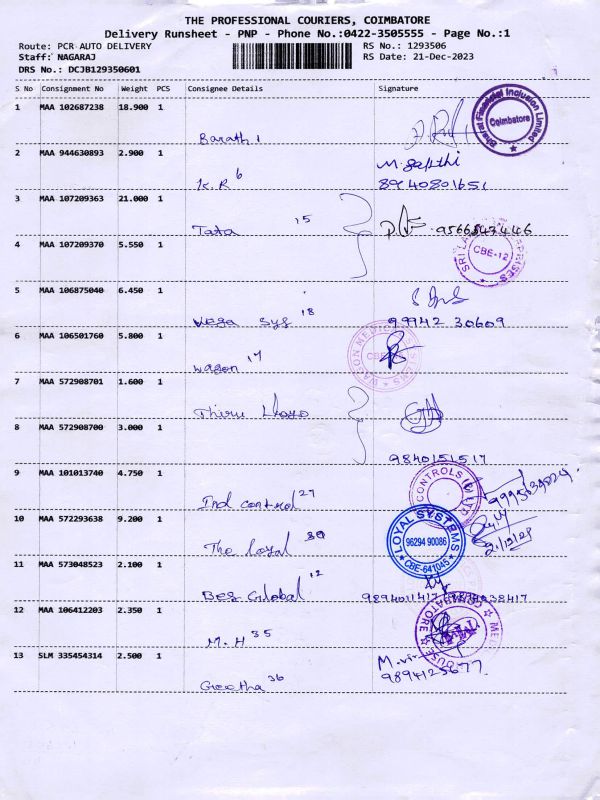 THE PROFESSIONAL COURIERS, COIMBATORE
Delivery Runsheet - PNP - Phone No.:0422-3505555 - Page No.:1
Route: PCR AUTO DELIVERY
RS No.: 1293506
Staff: NAGARAJ
RS Date: 21-Dec-2023
DRS No.: DCJB129350601
S No Consignment No Weight PCS Consignee Details Signature
1 MAA 102687238 18.900 1
Barath 1
Bharat Financial Inclusion Limited
Coimbatore
2 MAA 944630893 2.900 1
K.R 6
8940801651
3 MAA 107209363 21.000 1
Tata 15
9566847446
4 MAA 107209370 5.550 1
CBE-12
5 MAA 106875040 6.450 1
Vega Sys 18
99942 30609
6 MAA 106501760 5.800 1
Wagon 17
7 MAA 572908701 1.600 1
Thiru
8 MAA 572908700 3.000 1
9840151517
9 MAA 101013740 4.750 1
Ind control 27
CONTROLS (I) LTD
10 MAA 572293638 9.200 1
The Loyal 30
LOYAL SYSTEMS
96294 90086
CBE-641045
21/12/23
11 MAA 573048523 2.100 1
Bes Global 12
9894011417
12 MAA 106412203 2.350 1
M.H 35
13 SLM 335454314 2.500 1
Geetha 36
9894125677